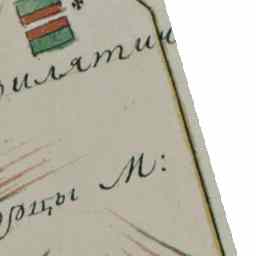 илятин
рцы М: